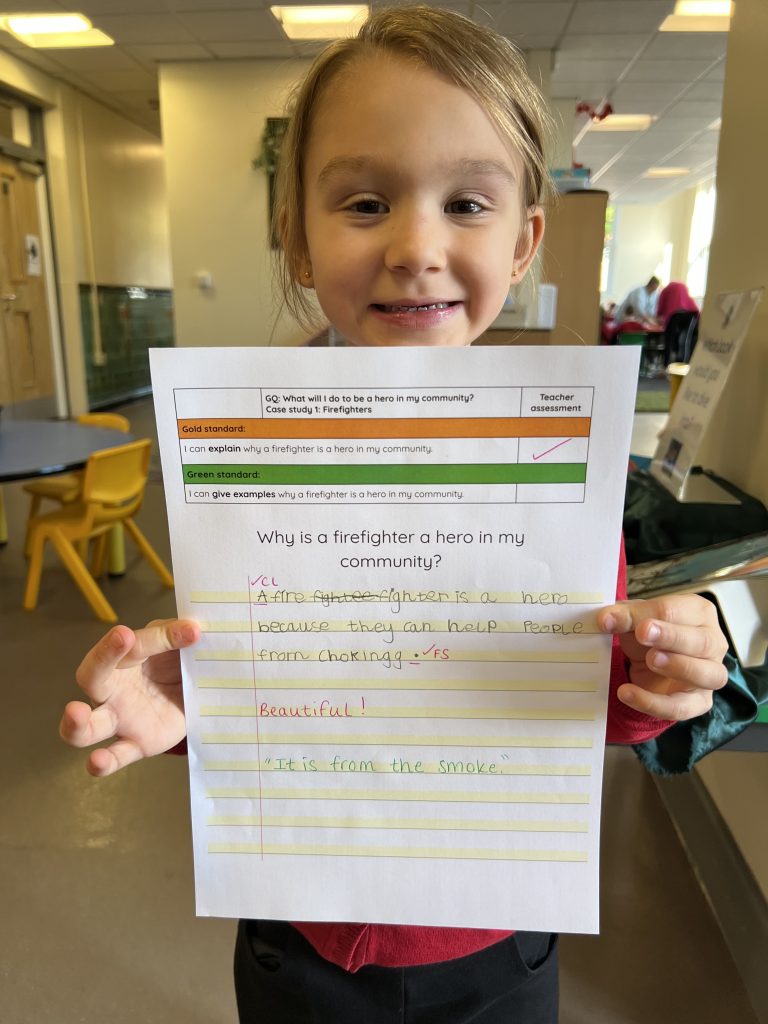 GQ: What will I do to be a hero in my community?
Case study 1: Firefighters
Teacher
assessment
Gold standard:
I can explain why a firefighter is a hero in my community.
Green standard:
I can give examples why a firefighter is a hero in my community.
Why is a firefighter a hero in my
community?
✓CL
A fire fightee fighter is a hero
because they can help PeoPLe
from chokingg . ✓FS
Beautiful!
"It is from the smoke."